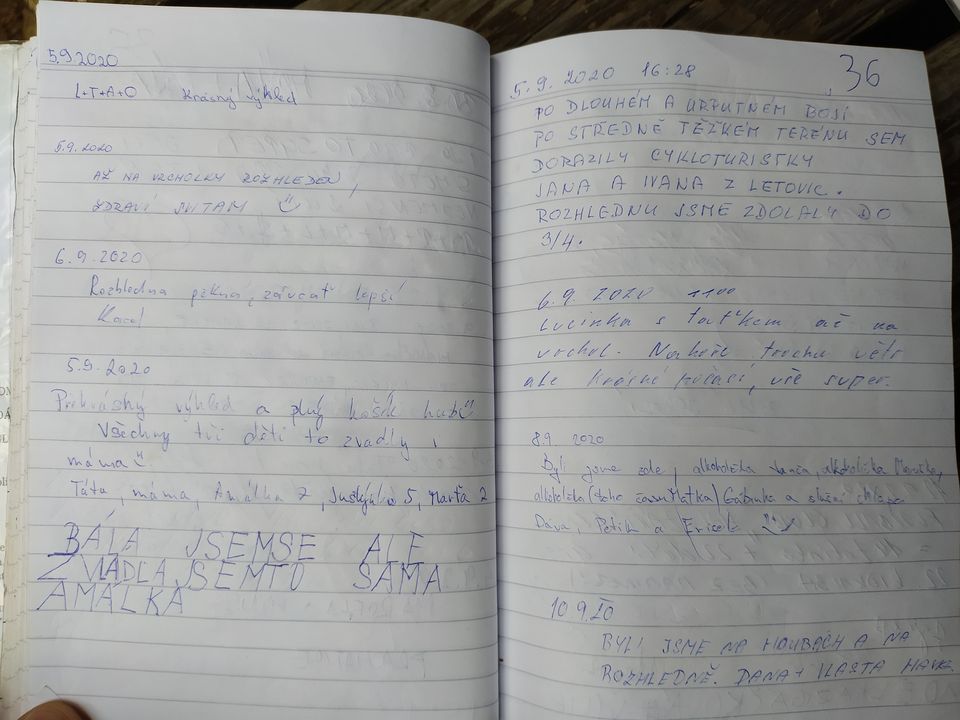 5.9.2020
L+T+A+O Krásný výhled
5.9.2020
AŽ NA VRCHOLKY ROZHLEDEN,
ZDRAVÍ SVITAM
6.9.2020
Rozhledna pěkná, závrať lepší
Karel
5.9.2020
Překrásný výhled a plný košík hub
Všechny tři děti to zvadly i
máma
Táta, máma, Amálka 7, 5, Marťa 2
BÁLA JSEMSE ALE
ZVLÁDLA JSEMTO SAMA
AMÁLKA
36
5.9.2020 16:28
PO DLOUHÉM A URPUTNÉM BOJI
PO STŘEDNĚ TĚŽKÉM TERÉNU SEM
DORAZILY CYKLOTURISTKY
JANA A IVANA Z LETOVIC.
ROZHLEDNU JSME ZDOLALY DO
3/4.
6.9.2020 1100
Lucinka s taťkem až na
vrchol. Nahoře trochu větr
ale krásné počasí, vše super.
8.9. 2020
Byli jsme zde, alkoholička alkoholička
alkoholička (toho času řidička) Gábinka a slušní chlapci
Dava, Petik a Ericek
10.9.20
BYLI JSME NA HOUBÁCH A NA
ROZHLEDNĚ. DANA + VLASTA